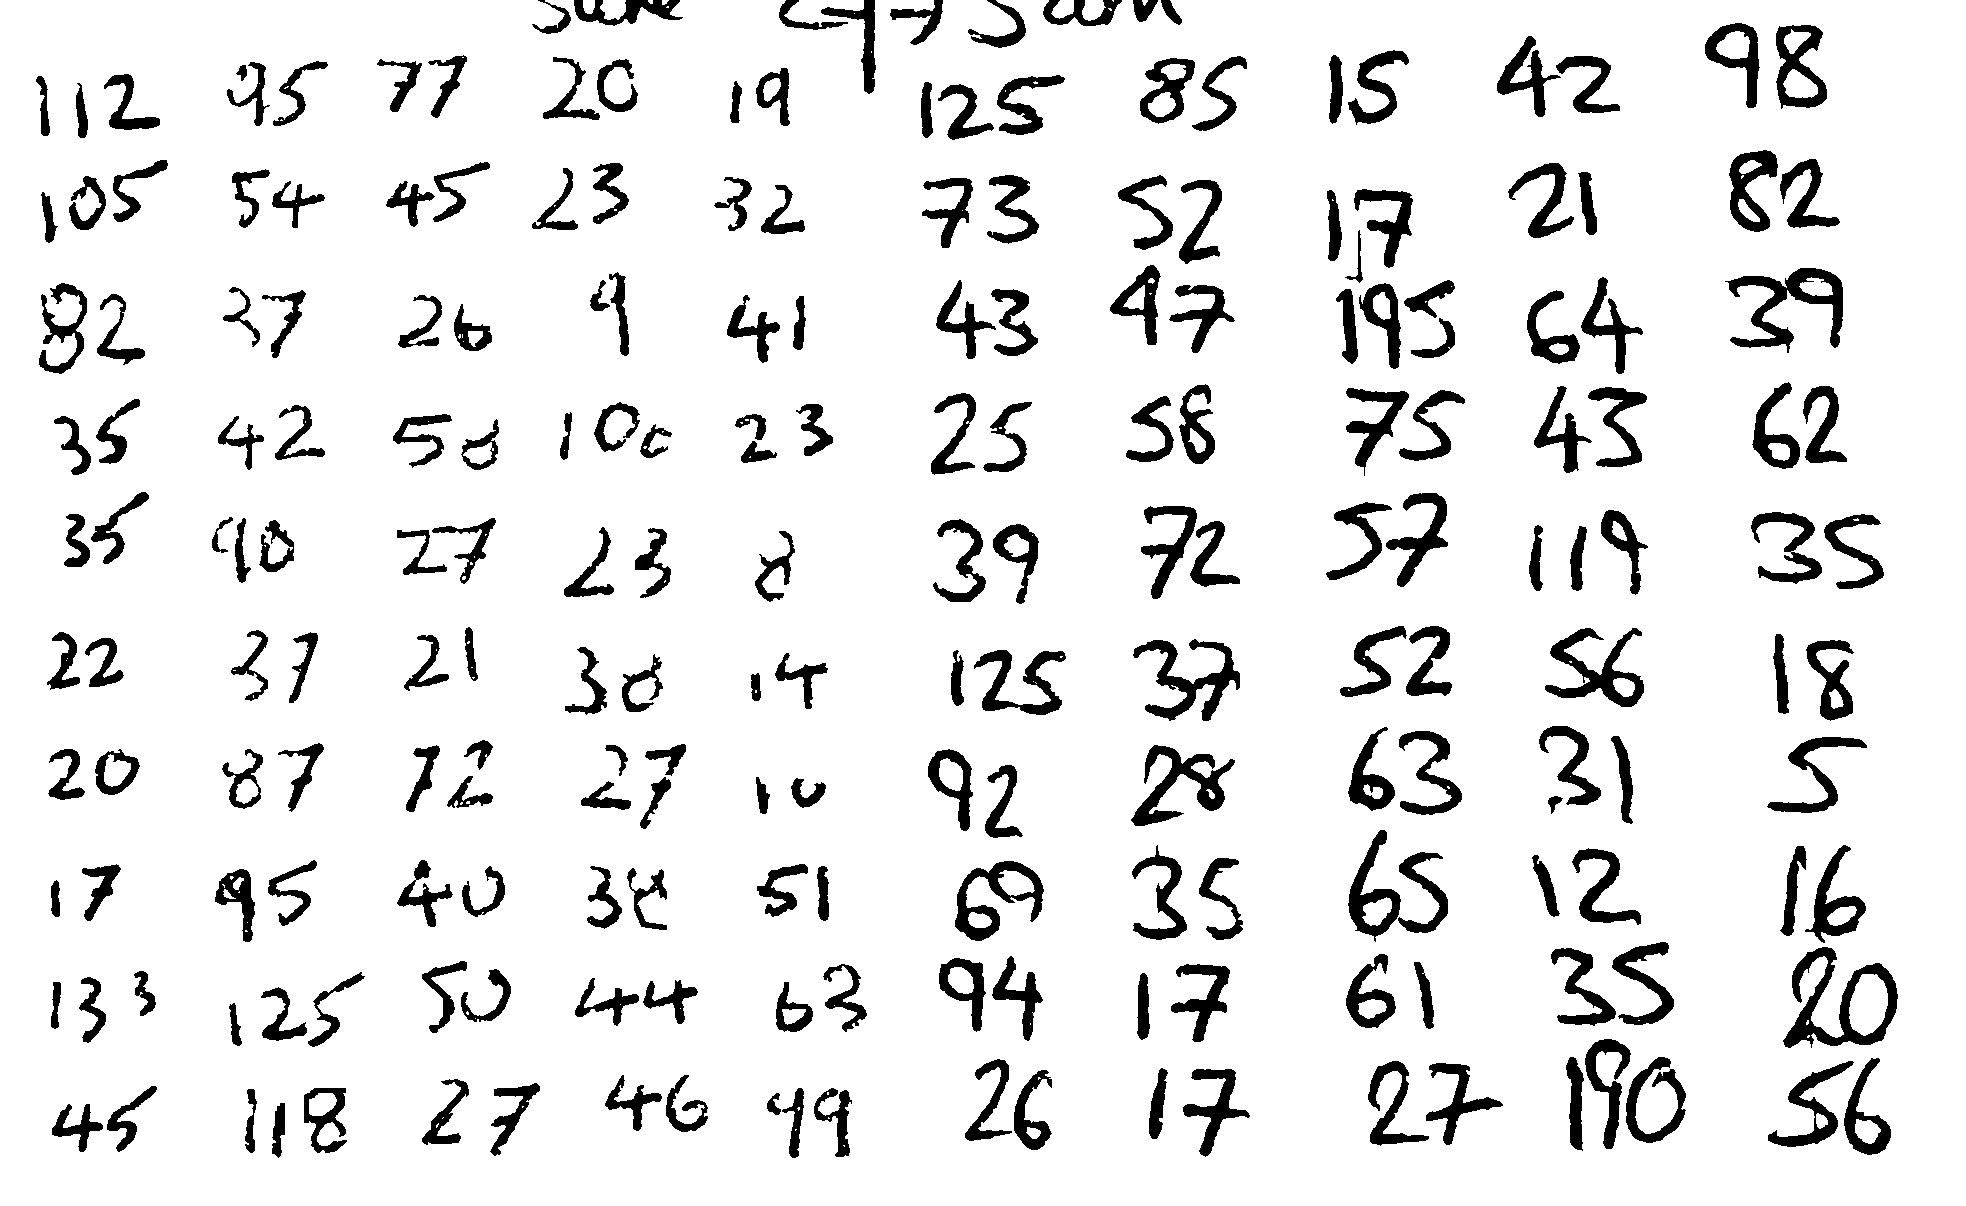 112 95 77 20 19 125 85 15 42 98
105 54 45 23 32 73 52 17 21 82
82 37 26 9 41 43 97 195 64 39
35 42 50 100 23 25 58 75 43 62
35 90 27 23 8 39 72 57 119 35
22 37 21 30 14 125 37 52 56 18
20 87 72 27 10 92 28 63 31 5
17 95 40 38 51 69 35 65 12 16
133 125 50 44 63 94 17 61 35 20
45 118 27 46 99 26 17 27 190 56